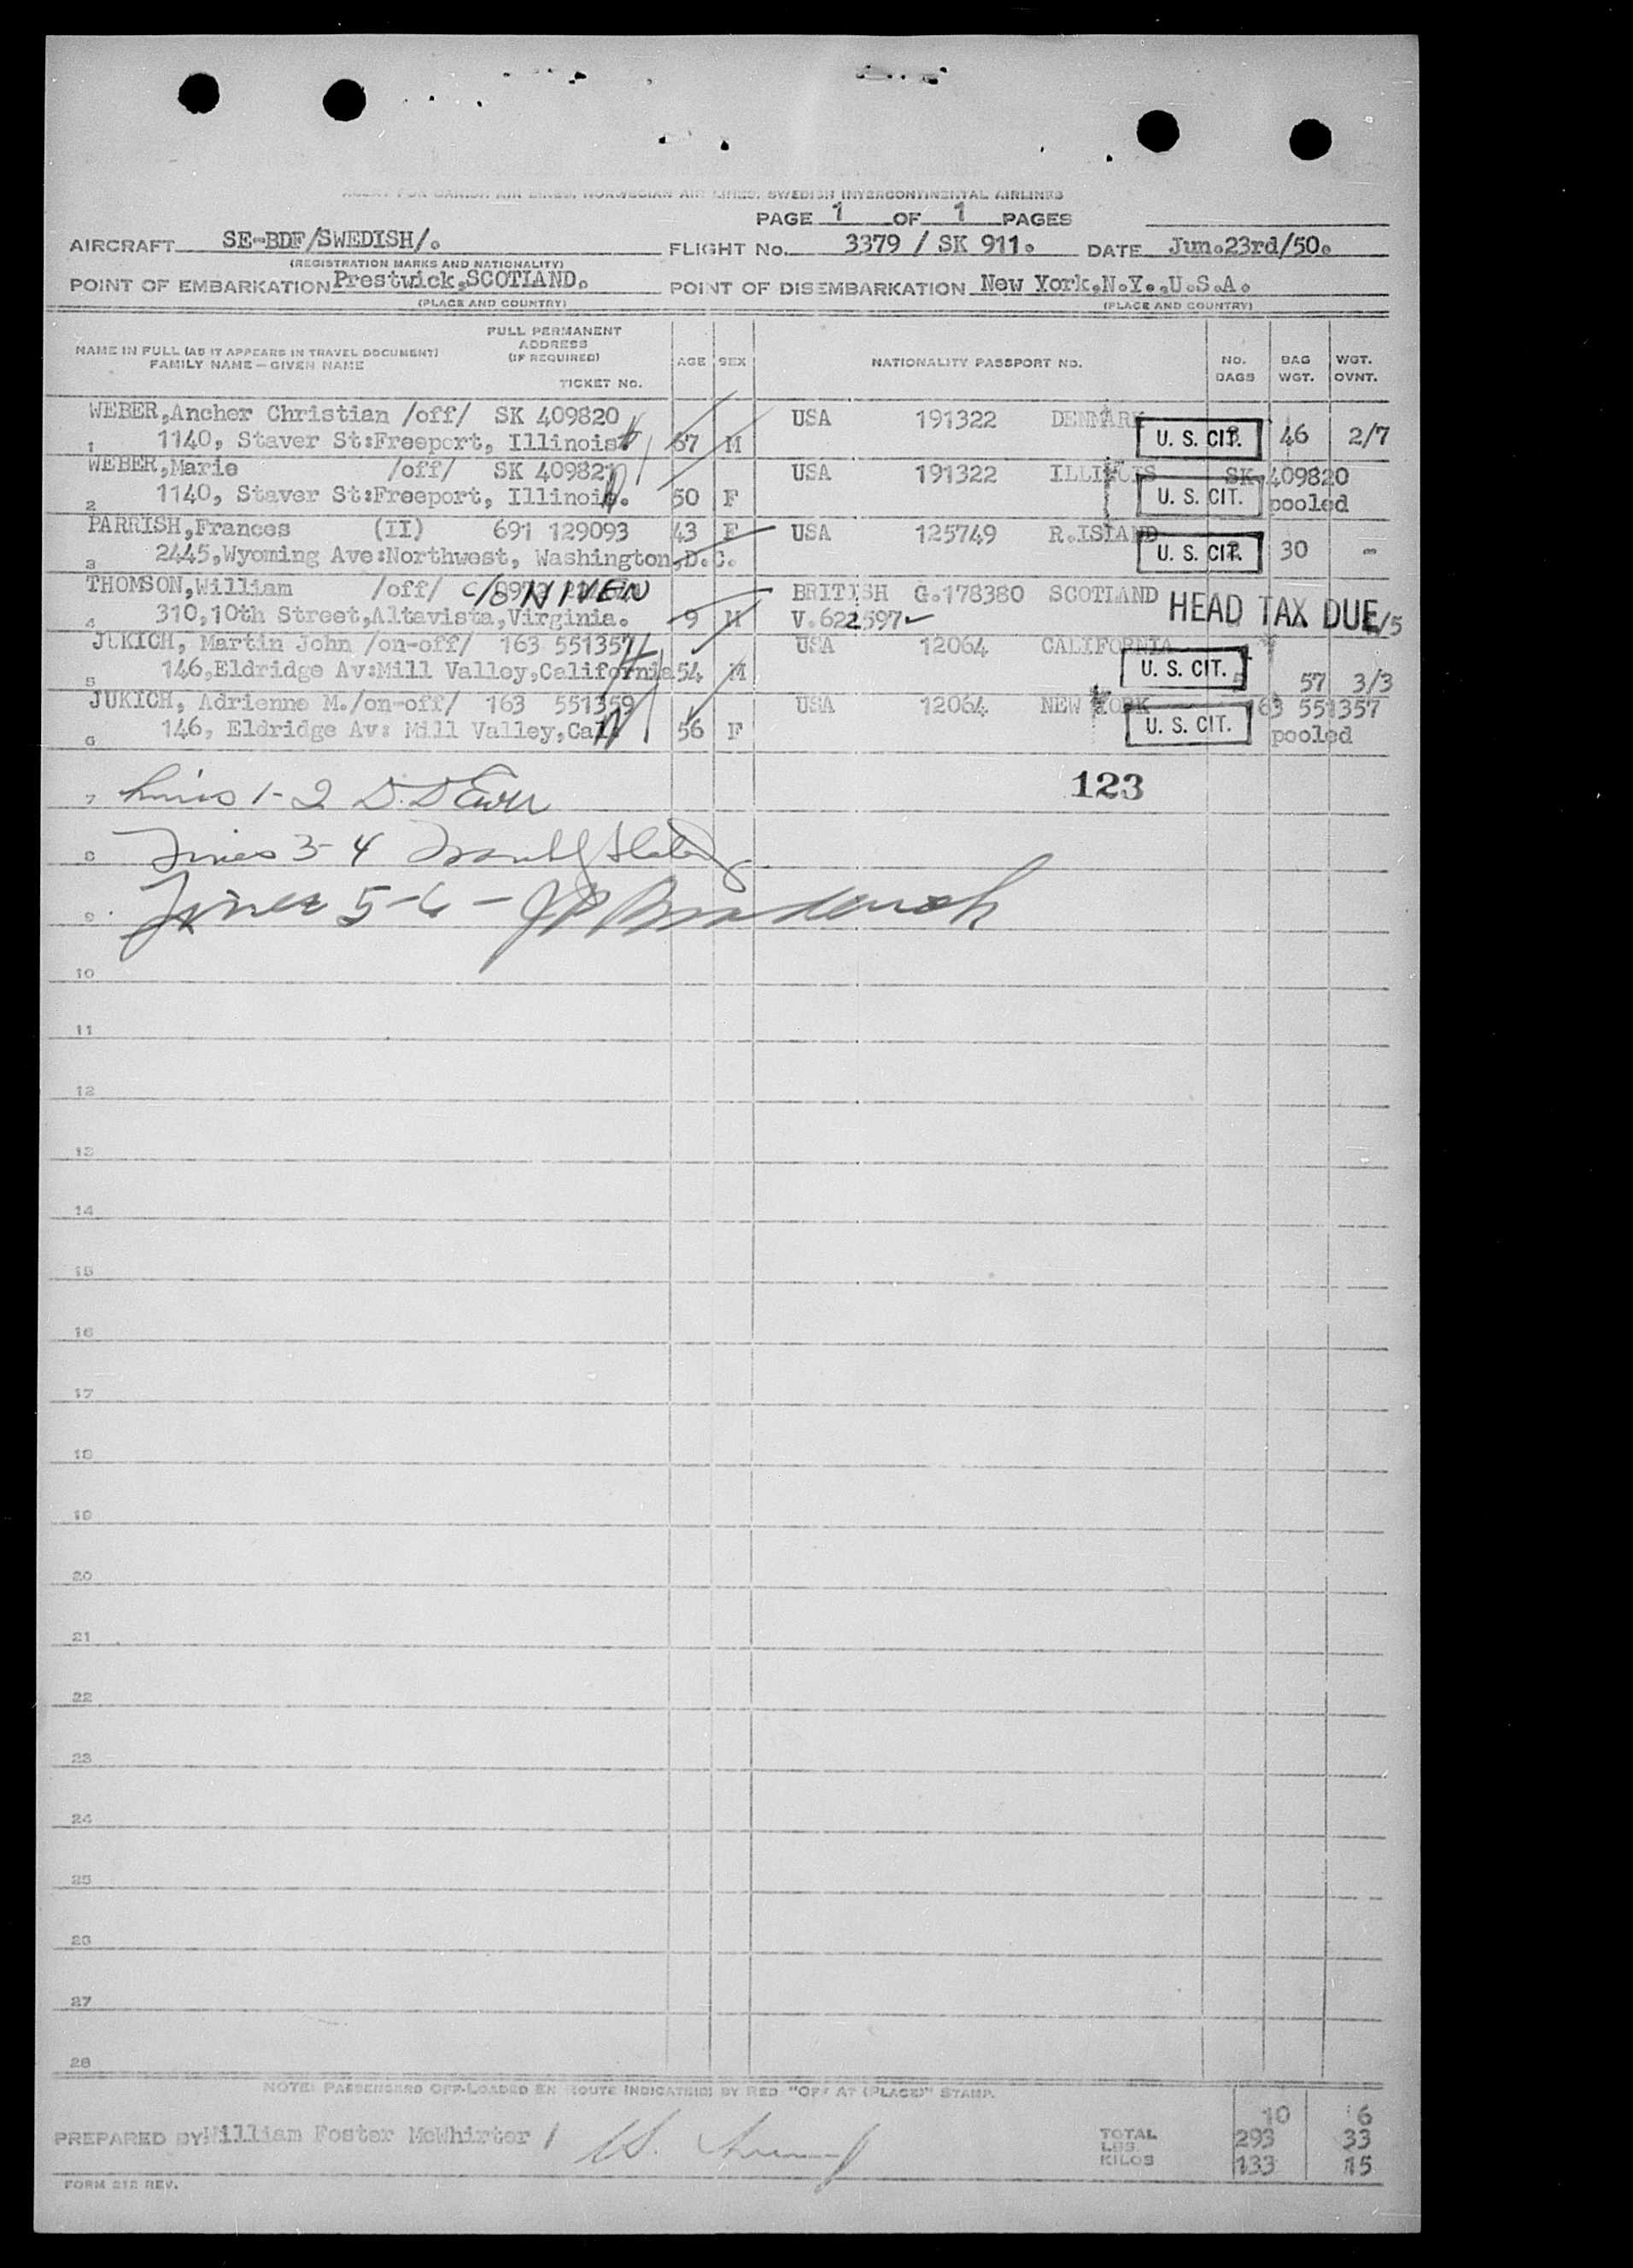 AGENT FOR DANISH AIR LINES, NORWEGIAN AIR LINES, SWEDISH INTERCONTINENTAL AIRLINES
PAGE 1 OF 1 PAGES
AIRCRAFT SE-BDF/SWEDISH/. FLIGHT No. 3379 / SK 911. DATE Jun.23rd/50.
(REGISTRATION MARKS AND NATIONALITY)
POINT OF EMBARKATION Prestwick,SCOTLAND. POINT OF DISEMBARKATION New York,N.Y.,U.S.A.
(PLACE AND COUNTRY) (PLACE AND COUNTRY)
NAME IN FULL (AS IT APPEARS IN TRAVEL DOCUMENT) FAMILY NAME—GIVEN NAME FULL PERMANENT ADDRESS (IF REQUIRED) TICKET No. AGE SEX NATIONALITY PASSPORT No. NO. BAGS BAG WGT. WGT. OVNT.
WEBER,Ancher Christian /off/ SK 409820 USA 191322 DENMARK
1 1140, Staver St:Freeport, Illinois 67 M U. S. CIT. 46 2/7
WEBER,Marie /off/ SK 409821 USA 191322 ILLINOIS SK 409820
2 1140, Staver St:Freeport, Illinois. 60 F U. S. CIT. pooled
PARRISH,Frances (II) 691 129093 43 F USA 125749 R.ISLAND
3 2445,Wyoming Ave:Northwest, Washington,D.C. U. S. CIT. 30 -
THOMSON,William /off/ C/O NIVEN BRITISH G.178380 SCOTLAND HEAD TAX DUE
4 310,10th Street,Altavista,Virginia. 9 M V.622597 /5
JUKICH, Martin John /on-off/ 163 551357 USA 12064 CALIFORNIA
5 146,Eldridge Av:Mill Valley,California 54 M U. S. CIT. 57 3/3
JUKICH, Adrienne M./on-off/ 163 551359 USA 12064 NEW YORK 163 551357
6 146, Eldridge Av: Mill Valley,Cal. 56 F U. S. CIT. pooled
7 Lines 1-2 123
8 Lines 3-4
9 Lines 5-6 -
10
11
12
13
14
15
16
17
18
19
20
21
22
23
24
25
26
27
28
NOTE: PASSENGERS OFF-LOADED EN ROUTE INDICATED BY RED "OFF AT (PLACE)" STAMP.
10 6
PREPARED BY William Foster McWhirter / TOTAL LBS. 293 33
KILOS 133 15
FORM 212 REV.